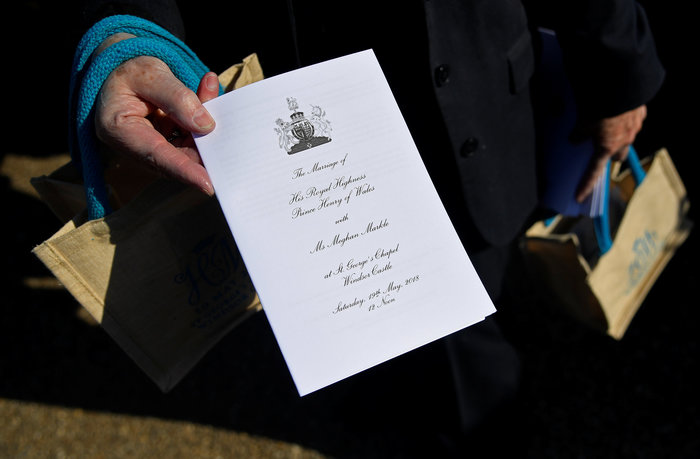 The Marriage of
His Royal Highness
Prince Henry of Wales
with
Ms Meghan Markle
at St George's Chapel
Windsor Castle
Saturday, 19th May, 2018
12 Noon